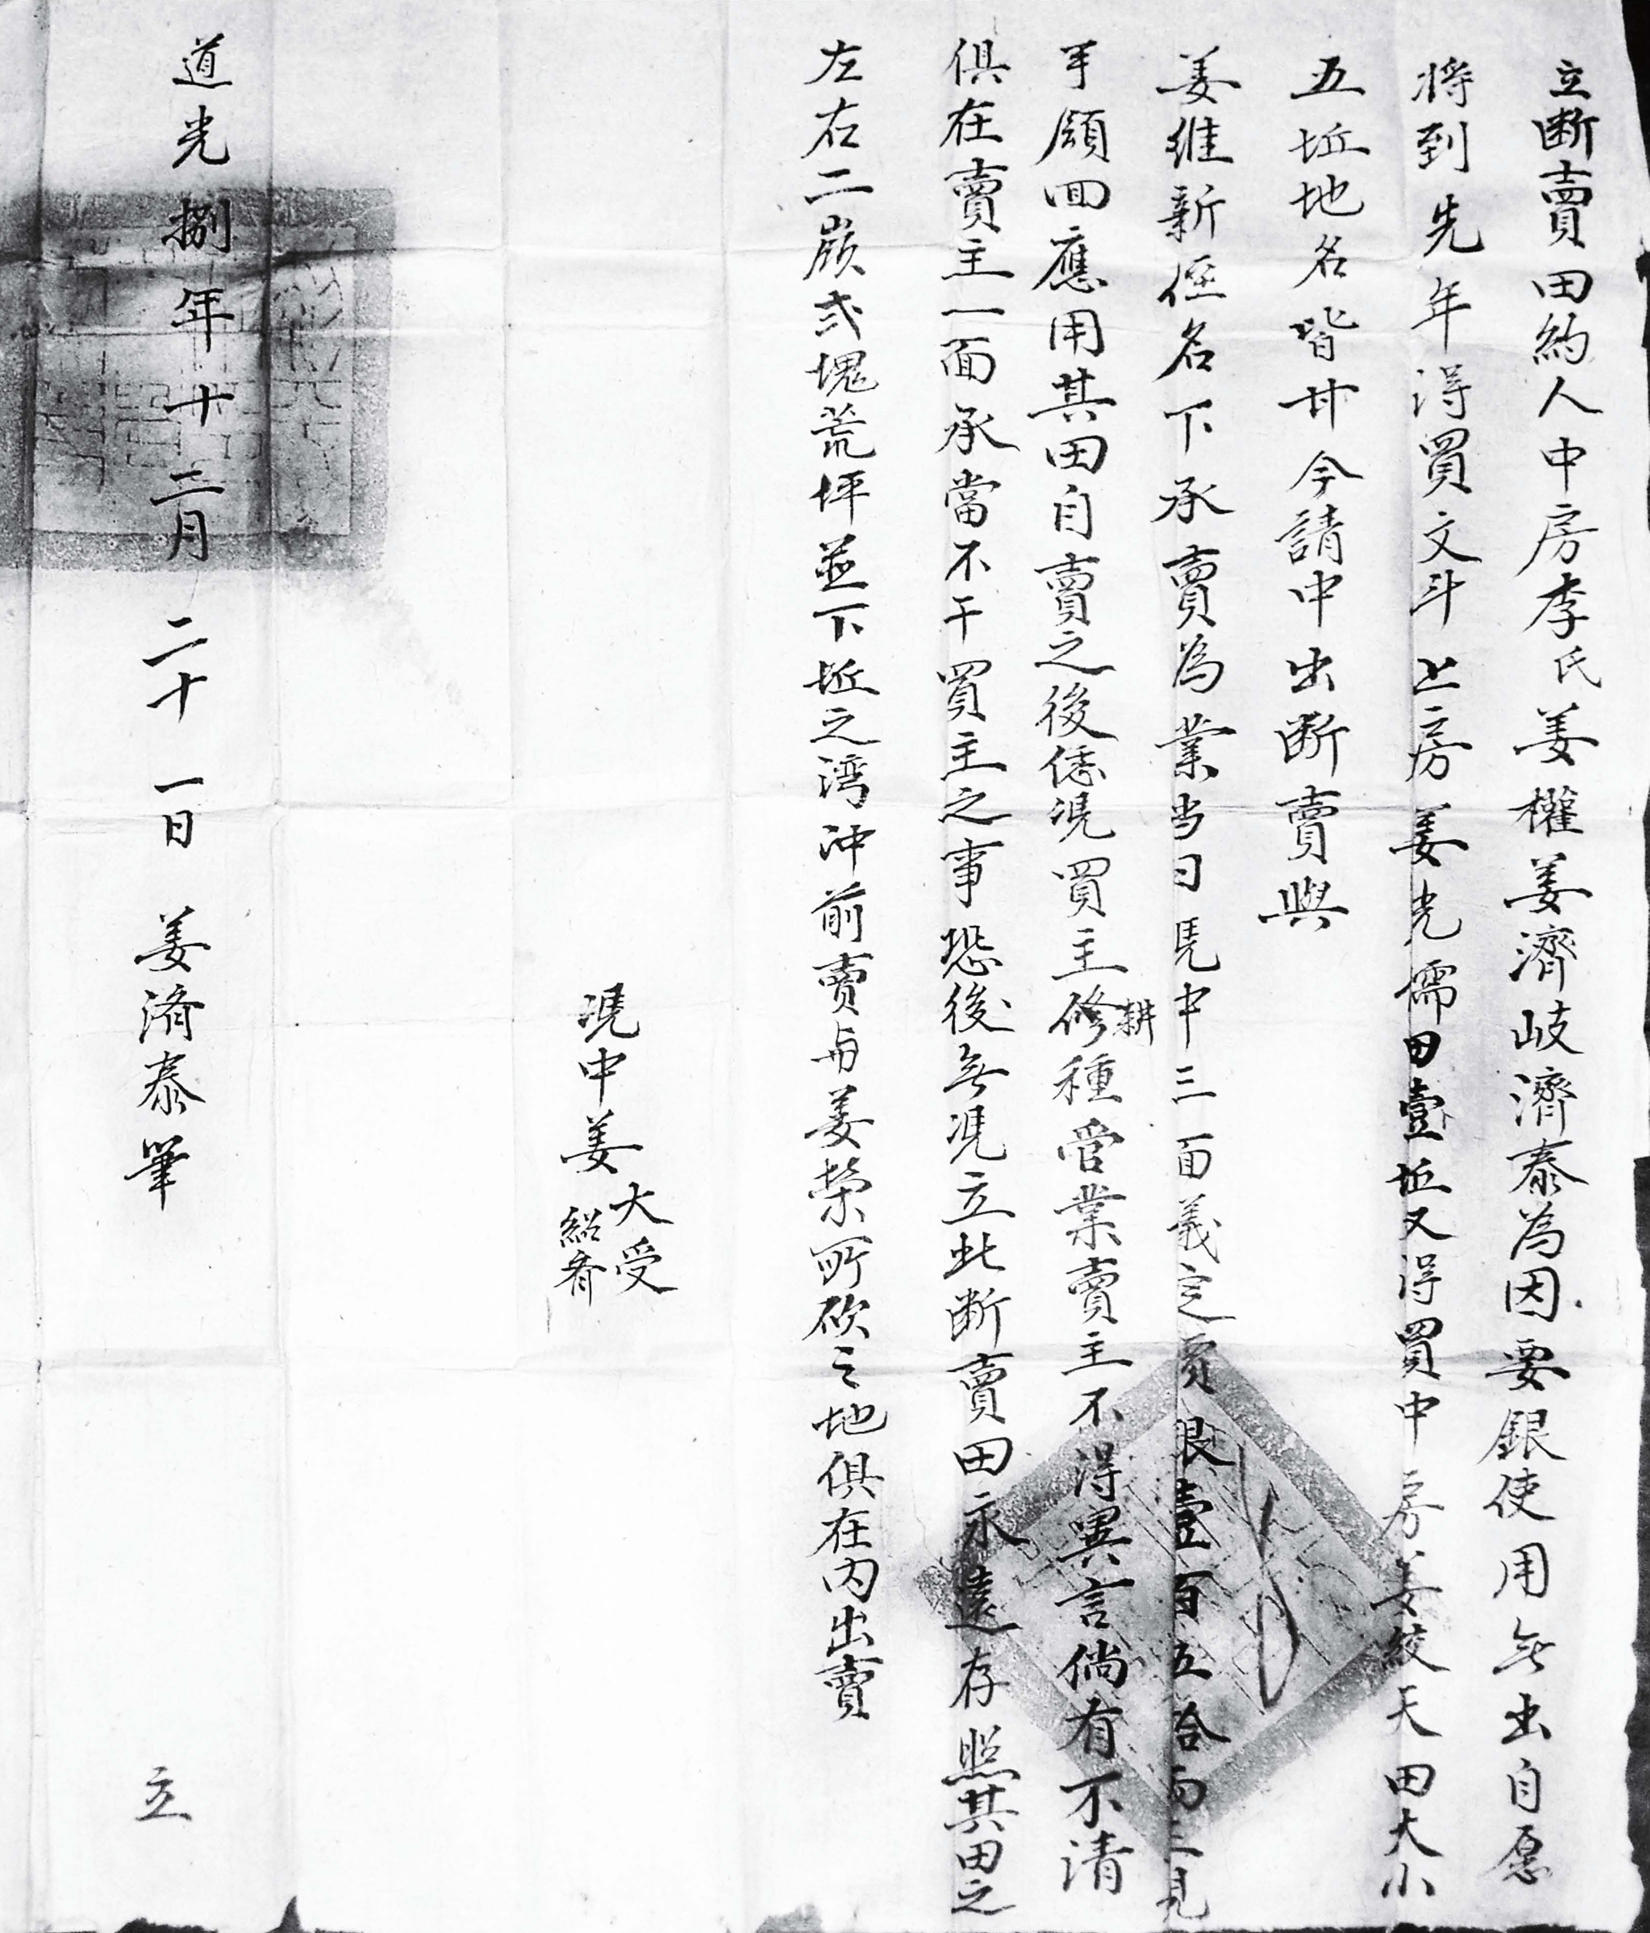 立断賣田約人中房李氏姜權姜濟岐濟泰為因要銀使用無出自愿
将到先年得買文斗上房姜光儒田壹坵又得買中房姜絞天田大小
五坵地名皆甘今請中出断賣與
姜維新侄名下承賣為業当日凴中三面義定價銀壹百五拾両正親
手領回應用其田自賣之後任凴買主修耕種管業賣主不得異言倘有不清
俱在賣主一面承當不干買主之事恐後無凴立此断賣田永遠存照其田之
左右二嶺弍塊荒坪並下坵之湾冲前賣与姜榮所砍之地俱在内出賣
凴中姜大受 紹齊
道光捌年十二月二十一日姜濟泰筆 立